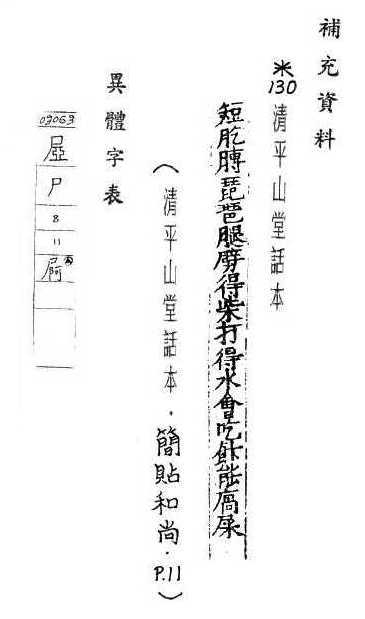 補充資料
※130 清平山堂話本
短肐膊琵琶腿劈得柴打得水會吃飰能屙屎
(清平山堂話本.簡貼和尚.P.11)
異體字表
03063
尸
8
11
屙